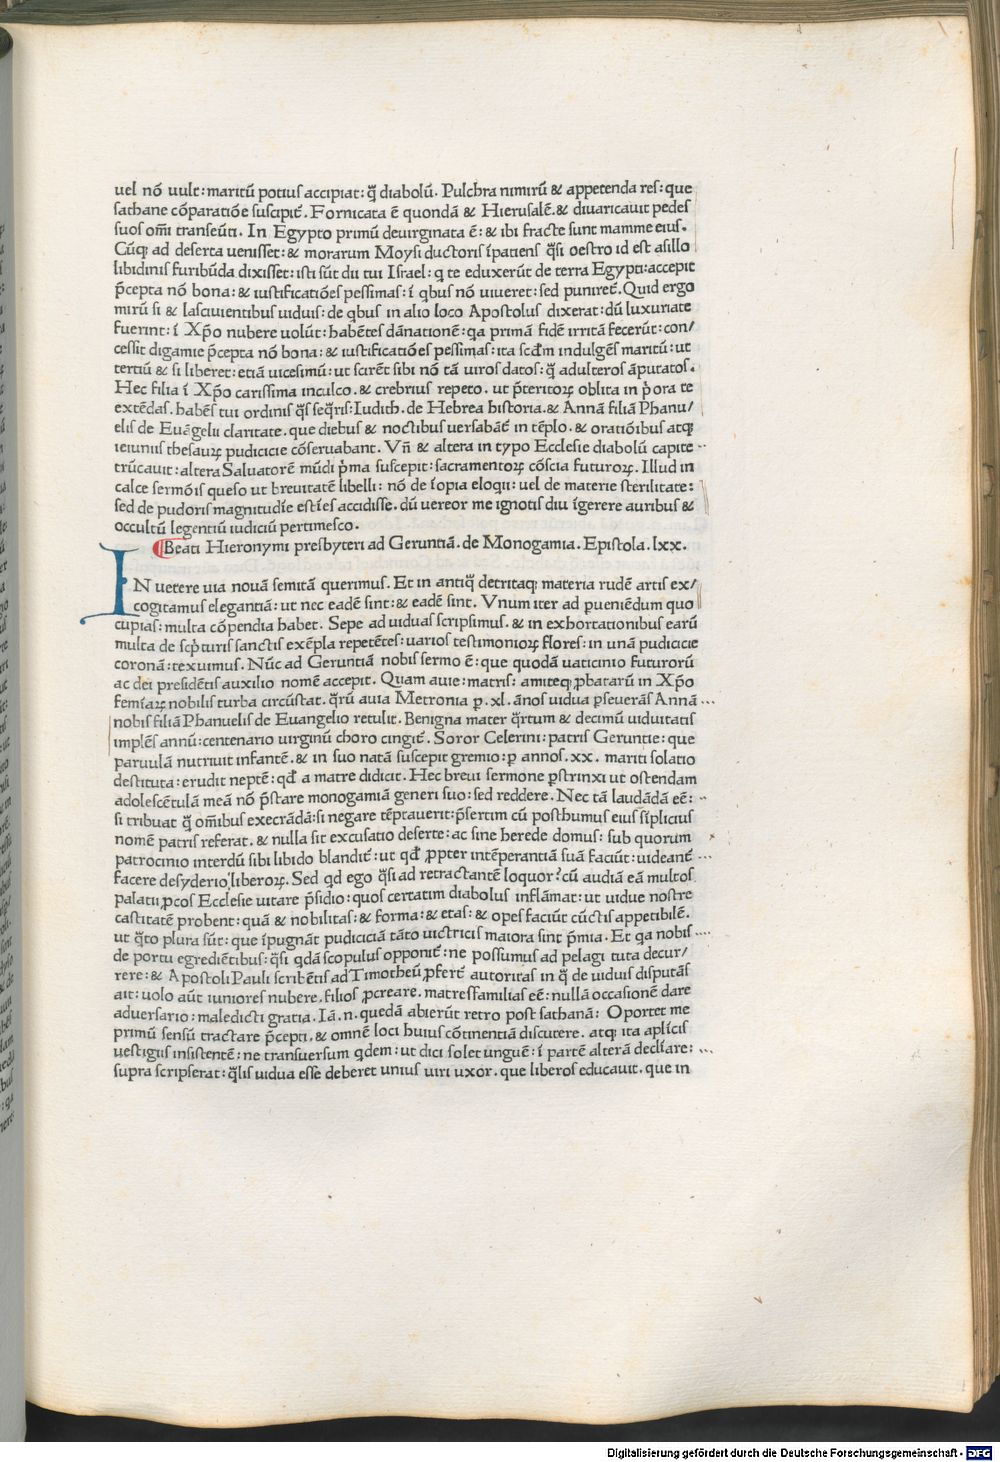 uel nō uult: maritū potius accipiat: q̄ diabolū. Pulchra nimirū & appetenda res: que
sathane cōparatiōe suscipit̄. Fornicata ē quondā & Hierusalē. & diuaricauit pedes
suos om̄i transeūti. In Egypto primū deuirginata ē: & ibi fracte sunt mamme eius.
Cūq; ad deserta uenisset: & morarum Moysi ductoris īpatiens q̄si oestro id est asillo
libidinis furibūda dixisset: isti sūt dii tui Israel: q te eduxerūt de terra Egypti: accepit
p̄cepta nō bona: & iustificatiōes pessimas: ī qbus nō uiueret: sed puniret̄. Quid ergo
mirū si & lasciuientibus uiduis: de qbus in alio loco Apostolus dixerat: dū luxuriate
fuerint: ī Xp̄o nubere uolūt: habētes dānationē: qa primā fidē irritā fecerūt: con/
cessit digamie p̄cepta nō bona: & iustificatiōes pessimas: ita scd̄m indulgēs maritū: ut
tertiū & si liberet: etiā uicesimū: ut scirēt sibi nō tā uiros datos: q̄ adulteros āputatos.
Hec filia ī Xp̄o carissima inculco. & crebrius repeto. ut p̄teritoꝝ oblita in p̄ora te
extēdas. habēs tui ordinis q̄s seq̄ris: Iudith. de Hebrea historia. & Annā filiā Phanu/
elis de Euāgelii claritate. que diebus & noctibus uersabāt̄ in tēplo. & oratiōibus atq;
ieiuniis thesauꝝ pudicicie cōseruabant. Vn̄ & altera in typo Ecclesie diabolū capite
trūcauit: altera Saluatorē mūdi p̄ma suscepit: sacramentoꝝ cōscia futuroꝝ. Illud in
calce sermōis queso ut breuitatē libelli: nō de īopia eloqii: uel de materie sterilitate:
sed de pudoris magnitudīe estīes accidisse. dū uereor me ignotis diu īgerere auribus &
occultū legentiū iudiciū pertimesco.
Beati Hieronymi presbyteri ad Geruntiā. de Monogamia. Epistola. lxx.
IN uetere uia nouā semitā querimus. Et in antiq̄ detritaq; materia rudē artis ex/
cogitamus elegantiā: ut nec eadē sint: & eadē sint. Vnum iter ad pueniēdum quo
cupias: multa cōpendia habet. Sepe ad uiduas scripsimus. & in exhortationibus earū
multa de sc̄pturis sanctis exēpla repetētes: uarios testimonioꝝ flores: in unā pudicicie
coronā: texuimus. Nūc ad Geruntiā nobis sermo ē: que quodā uaticinio futurorū
ac dei presidētis auxilio nomē accepit. Quam auie: matris: amiteq; ꝓbatarū in Xp̄o
femīaꝝ nobilis turba circūstat. q̄rū auia Metronia ꝑ. xl. ānos uidua ꝑseuerās Annā
nobis filiā Phanuelis de Euangelio retulit. Benigna mater q̄rtum & decimū uiduitatis
implēs annū: centenario uirginū choro cingit̄. Soror Celerini: patris Geruntie: que
paruulā nutriuit infantē. & in suo natā suscepit gremio: ꝑ annos. xx. mariti solatio
destituta: erudit neptē: qd̄ a matre didicit. Hec breui sermone ꝑstrinxi ut ostendam
adolescētulā meā nō p̄stare monogamiā generi suo: sed reddere. Nec tā laudādā eē:
si tribuat q̄ om̄ibus execrādā: si negare tēptauerit: p̄sertim cū posthumus eius sīplicius
nomē patris referat. & nulla sit excusatio deserte: ac sine herede domus: sub quorum
patrocinio interdū sibi libido blandit̄: ut qd̄ ꝓpter intēperantiā suā faciūt: uideant̄
facere desyderio liberoꝝ. Sed qd ego q̄si ad retractantē loquor? cū audiā eā multos
palatii ꝓcos Ecclesie uitare p̄sidio: quos certatim diabolus inflāmat: ut uidue nostre
castitatē probent: quā & nobilitas: & forma: & etas: & opes faciūt cūctis appetibilē.
ut q̄to plura sūt: que īpugnāt pudiciciā tāto uictricis maiora sint p̄mia. Et qa nobis
de portu egrediētibus: q̄si qdā scopulus opponit̄: ne possumus ad pelagi tuta decur/
rere: & Apostoli Pauli scribētis ad Timotheū ꝓfert̄ autoritas in q̄ de uiduis disputās
ait: uolo aūt iuniores nubere. filios ꝓcreare. matresfamilias eē: nullā occasionē dare
aduersario: maledicti gratia. Iā. n. quedā abierūt retro post sathanā: Oportet me
primū sensū tractare p̄cepti. & omnē loci huius cōtinentiā discutere. atq; ita apl̄icis
uestigiis insistentē: ne transuersum qdem: ut dici solet unguē: ī partē alterā declīare:
supra scripserat: q̄lis uidua esse deberet unius uiri uxor. que liberos educauit. que in
Digitalisierung gefördert durch die Deutsche Forschungsgemeinschaft - DFG